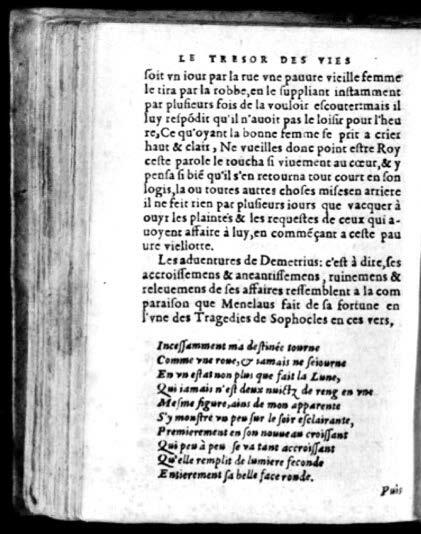 LE TRESOR DES VIES
soit vn iour par la rue vne pauure vieille femme
le tira par la robbe, en le suppliant instamment
par plusieurs fois de la vouloir escouter: mais il
luy respõdit qu'il n'auoit pas le loisir pour l'heu
re, Ce qu'oyant la bonne femme se prit a crier
haut & clair, Ne vueilles donc point estre Roy
ceste parole le toucha si viuement au cœur, & y
pensa si biẽ qu'il s'en retourna tout court en son
logis, la ou toutes autres choses mises en arriere
il ne feit rien par plusieurs iours que vacquer à
ouyr les plaintes & les requestes de ceux qui a-
uoyent affaire à luy, en commẽçant a ceste pau
ure viellotte.
Les aduentures de Demetrius: c'est à dire, ses
accroissemens & aneantissemens, ruinemens &
releuemens de ses affaires ressemblent a la com
paraison que Menelaus fait de sa fortune en
l'vne des Tragedies de Sophocles en ces vers,
Incessamment ma destinée tourne
Comme vne roue, & iamais ne seiourne
En vn estat non plus que fait la Lune,
Qui iamais n'est deux nuictz de reng en vne
Mesme figure, ains de mon apparente
S'y monstre vn peu sur le soir esclairante,
Premierement en son nouueau croissant
Qui peu à peu se va tant accroissant
Qu'elle remplit de lumiere feconde
Entierement sa belle face ronde.
Puis